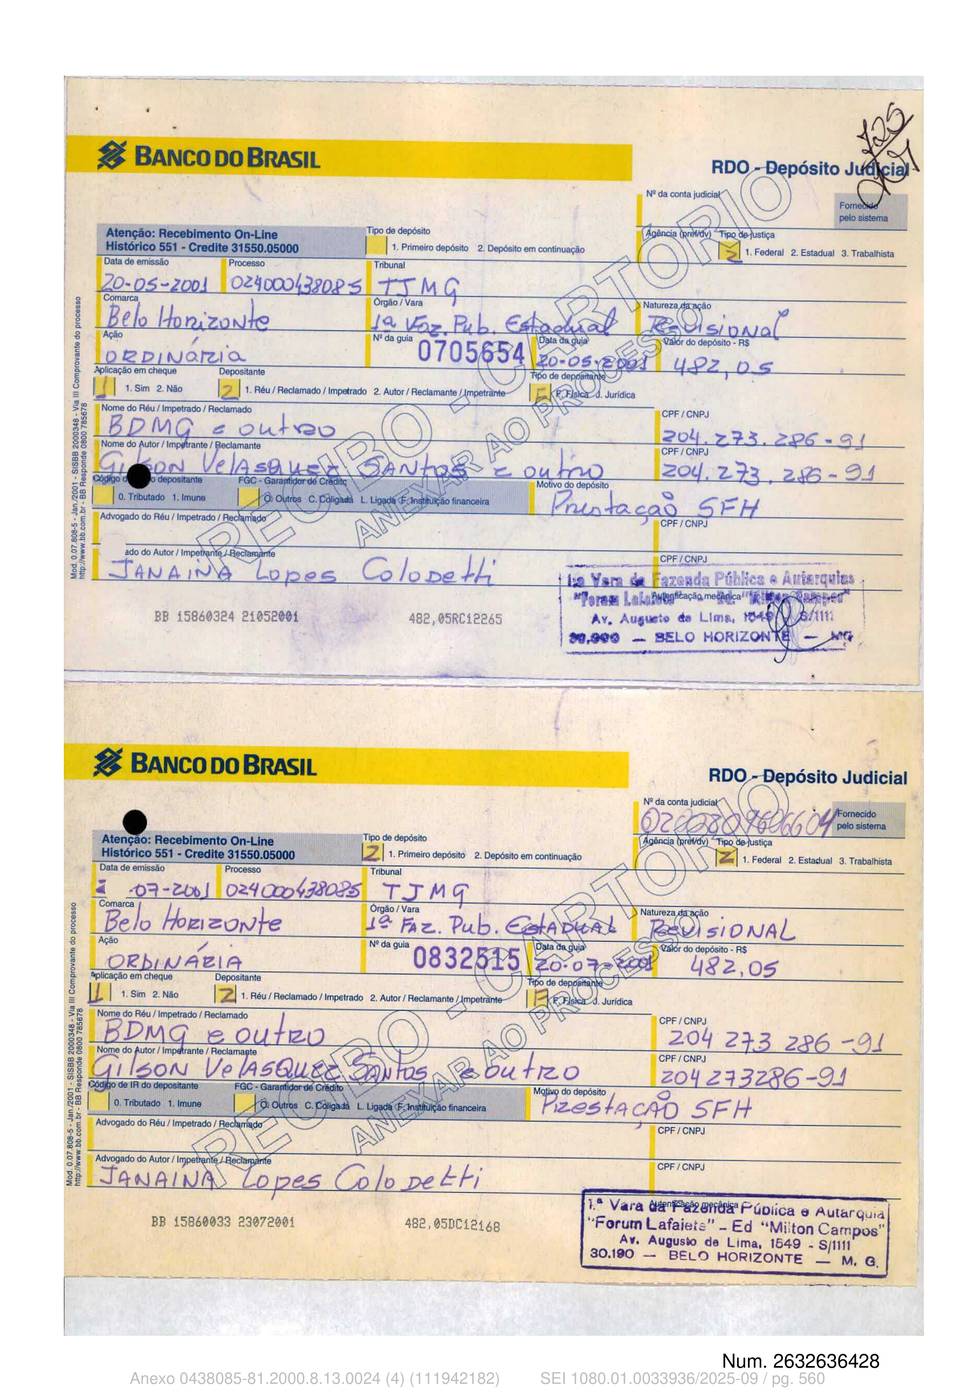 725
BANCO DO BRASIL
RDO - Depósito Judicial
Nº da conta judicial
Fornecido
pelo sistema
Atenção: Recebimento On-Line
Histórico 551 - Credite 31550.05000
Tipo de depósito
1. Primeiro depósito 2. Depósito em continuação
Agência (pref/dv) Tipo de justiça
2 1. Federal 2. Estadual 3. Trabalhista
Data de emissão Processo Tribunal
20-05-2001 024000438085 TJMG
Comarca Órgão / Vara Natureza da ação
Belo Horizonte 1ª Faz. Pub. Estadual Revisional
Ação Nº da guia Data da guia Valor do depósito - R$
ORDINÁRIA 0705654 20-05-2001 482,05
Aplicação em cheque Depositante Tipo de depositante
1 1. Sim 2. Não 2 1. Réu / Reclamado / Impetrado 2. Autor / Reclamante / Impetrante F F. Física J. Jurídica
Nome do Réu / Impetrado / Reclamado CPF / CNPJ
BDMG e outro 204.273.286-91
Nome do Autor / Impetrante / Reclamante CPF / CNPJ
Gilson Velasquez Santos e outro 204.273.286-91
Código depositante FGC - Garantidor de Crédito Motivo do depósito
0. Tributado 1. Imune O. Outros C. Coligada L. Ligada F. Instituição financeira Prestação SFH
Advogado do Réu / Impetrado / Reclamado CPF / CNPJ
ado do Autor / Impetrante / Reclamante CPF / CNPJ
JANAINA Lopes Colodetti
Autenticação mecânica
1.a Vara da Fazenda Pública e Autarquias
"Forum Lafaiete" "Milton Campos"
Av. Augusto de Lima, 1549 S/1111
30.190 — BELO HORIZONTE — MG
BB 15860324 21052001 482,05RC12265
RECIBO - CARTORIO
ANEXAR AO PROCESSO
Mod. 0.07.808-5 - Jan./2001 - SISBB 2000348 - Via III Comprovante do processo
http://www.bb.com.br - BB Responde 0800 785678
BANCO DO BRASIL
RDO - Depósito Judicial
Nº da conta judicial
Fornecido
pelo sistema
Atenção: Recebimento On-Line
Histórico 551 - Credite 31550.05000
Tipo de depósito
2 1. Primeiro depósito 2. Depósito em continuação
Agência (pref/dv) Tipo de justiça
2 1. Federal 2. Estadual 3. Trabalhista
Data de emissão Processo Tribunal
-07-2001 024000438085 TJMG
Comarca Órgão / Vara Natureza da ação
Belo Horizonte 1ª Faz. Pub. Estadual Revisional
Ação Nº da guia Data da guia Valor do depósito - R$
ORDINÁRIA 0832515 20-07-2001 482,05
Aplicação em cheque Depositante Tipo de depositante
1 1. Sim 2. Não 2 1. Réu / Reclamado / Impetrado 2. Autor / Reclamante / Impetrante F F. Física J. Jurídica
Nome do Réu / Impetrado / Reclamado CPF / CNPJ
BDMG e outro 204 273 286-91
Nome do Autor / Impetrante / Reclamante CPF / CNPJ
Gilson Velasquez Santos e outro 204273286-91
Código de IR do depositante FGC - Garantidor de Crédito Motivo do depósito
0. Tributado 1. Imune O. Outros C. Coligada L. Ligada F. Instituição financeira Prestação SFH
Advogado do Réu / Impetrado / Reclamado CPF / CNPJ
Advogado do Autor / Impetrante / Reclamante CPF / CNPJ
JANAINA Lopes Colodetti
Autenticação mecânica
1.ª Vara da Fazenda Pública e Autarquia
"Forum Lafaiete" – Ed "Milton Campos"
Av. Augusto de Lima, 1549 - S/1111
30.190 — BELO HORIZONTE — M. G.
BB 15860033 23072001 482,05DC12168
RECIBO - CARTORIO
ANEXAR AO PROCESSO
Mod. 0.07.808-5 - Jan./2001 - SISBB 2000348 - Via III Comprovante do processo
http://www.bb.com.br - BB Responde 0800 785678
Num. 2632636428
Anexo 0438085-81.2000.8.13.0024 (4) (111942182) SEI 1080.01.0033936/2025-09 / pg. 560